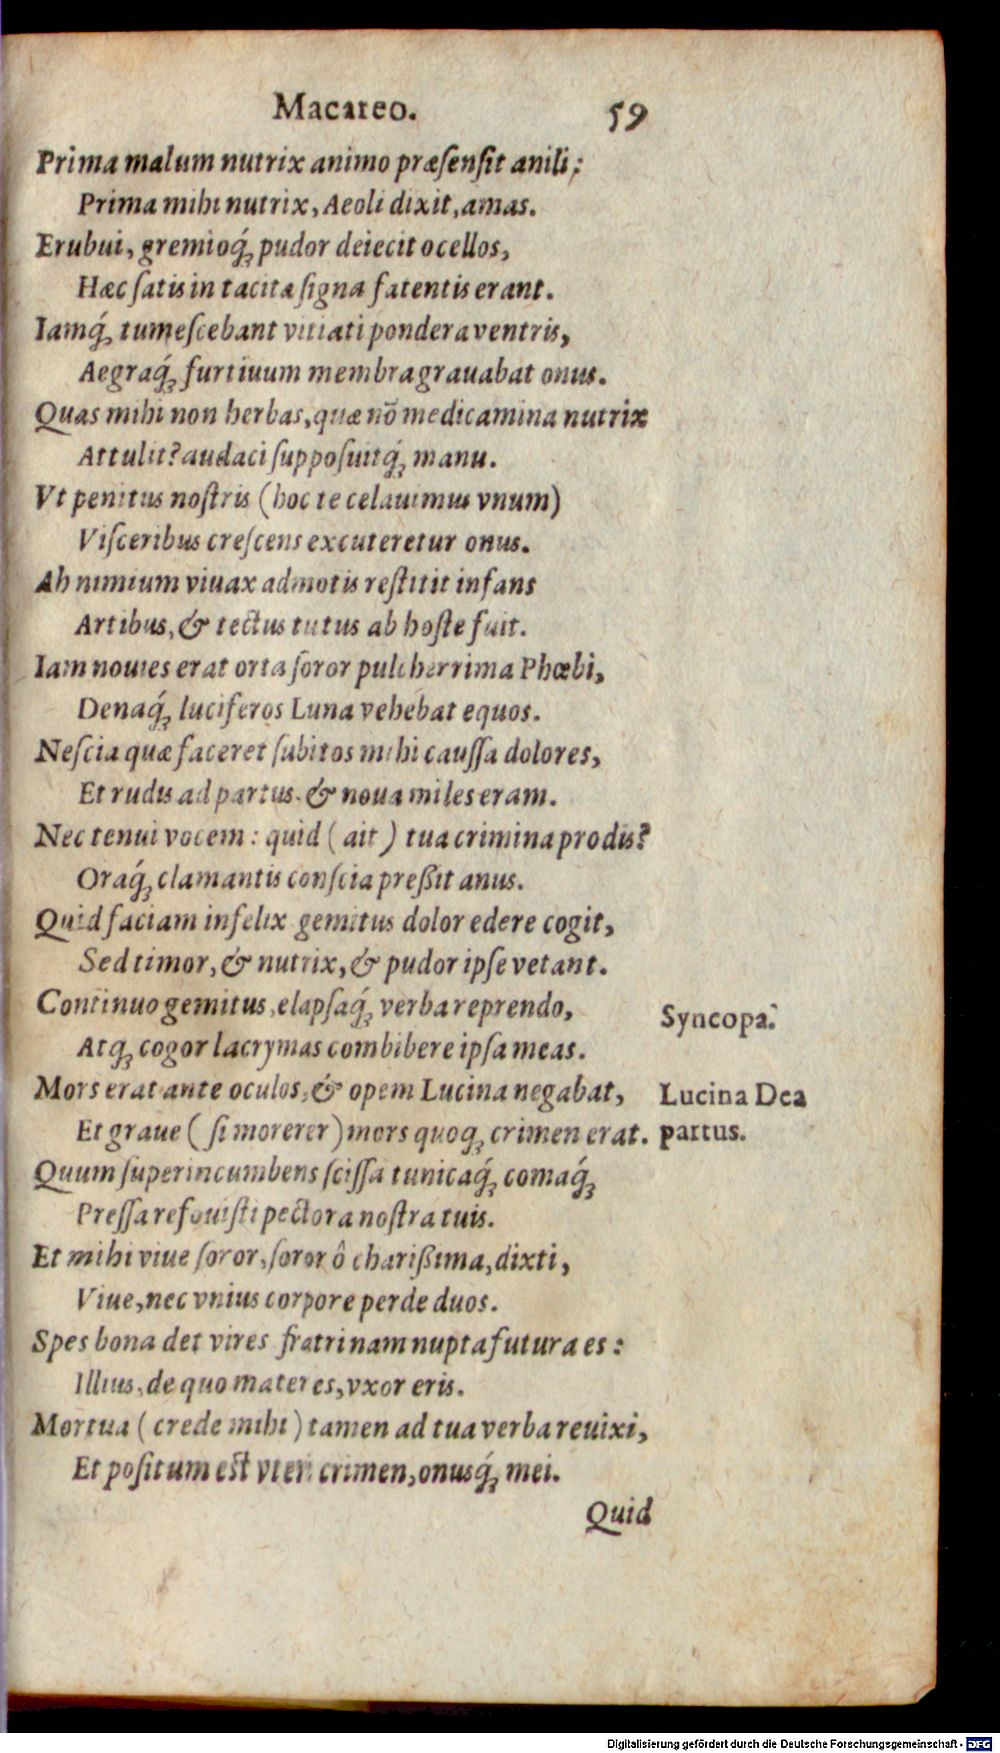 Macareo. 59
Prima malum nutrix animo præsensit anili;
Prima mihi nutrix, Aeoli dixit, amas.
Erubui, gremioq́; pudor deiecit ocellos,
Hæc satis in tacita signa fatentis erant.
Iamq́; tumescebant vitiati pondera ventris,
Aegraq́; furtiuum membra grauabat onus.
Quas mihi non herbas, quæ nō medicamina nutrix
Attulit? audaci supposuitq́; manu.
Vt penitus nostris (hoc te celauimus vnum)
Visceribus crescens excuteretur onus.
Ah nimium viuax admotis restitit infans
Artibus, & tectus tutus ab hoste fuit.
Iam nouies erat orta soror pulcherrima Phœbi,
Denaq́; luciferos Luna vehebat equos.
Nescia quæ faceret subitos mihi caussa dolores,
Et rudis ad partus, & noua miles eram.
Nec tenui vocem: quid (ait) tua crimina prodis?
Oraq́; clamantis conscia preßit anus.
Quid faciam infelix gemitus dolor edere cogit,
Sed timor, & nutrix, & pudor ipse vetant.
Continuo gemitus, elapsaq́; verba reprendo,
Syncopa.
Atq; cogor lacrymas combibere ipsa meas.
Mors erat ante oculos, & opem Lucina negabat,
Lucina Dea
Et graue (si morerer) mors quoq; crimen erat.
partus.
Quum superincumbens scissa tunicaq́; comaq́;
Pressa refouisti pectora nostra tuis.
Et mihi viue soror, soror ô charißima, dixti,
Viue, nec vnius corpore perde duos.
Spes bona det vires fratri nam nupta futura es:
Illius, de quo mater es, vxor eris.
Mortua (crede mihi) tamen ad tua verba reuixi,
Et positum est vteri crimen, onusq́; mei.
Quid
Digitalisierung gefördert durch die Deutsche Forschungsgemeinschaft - DFG